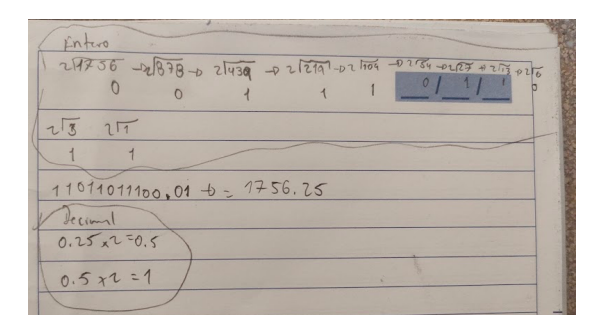 Entero
2√1756 → 2√878 → 2√439 → 2√219 → 2√109 → 2√54 → 2√27 → 2√13 → 2√6
0 0 1 1 1 0 / 1 / 1 0
2√3 2√1
1 1
11011011100,01 → = 1756.25
Decimal
0.25 x2 = 0.5
0.5 x2 = 1